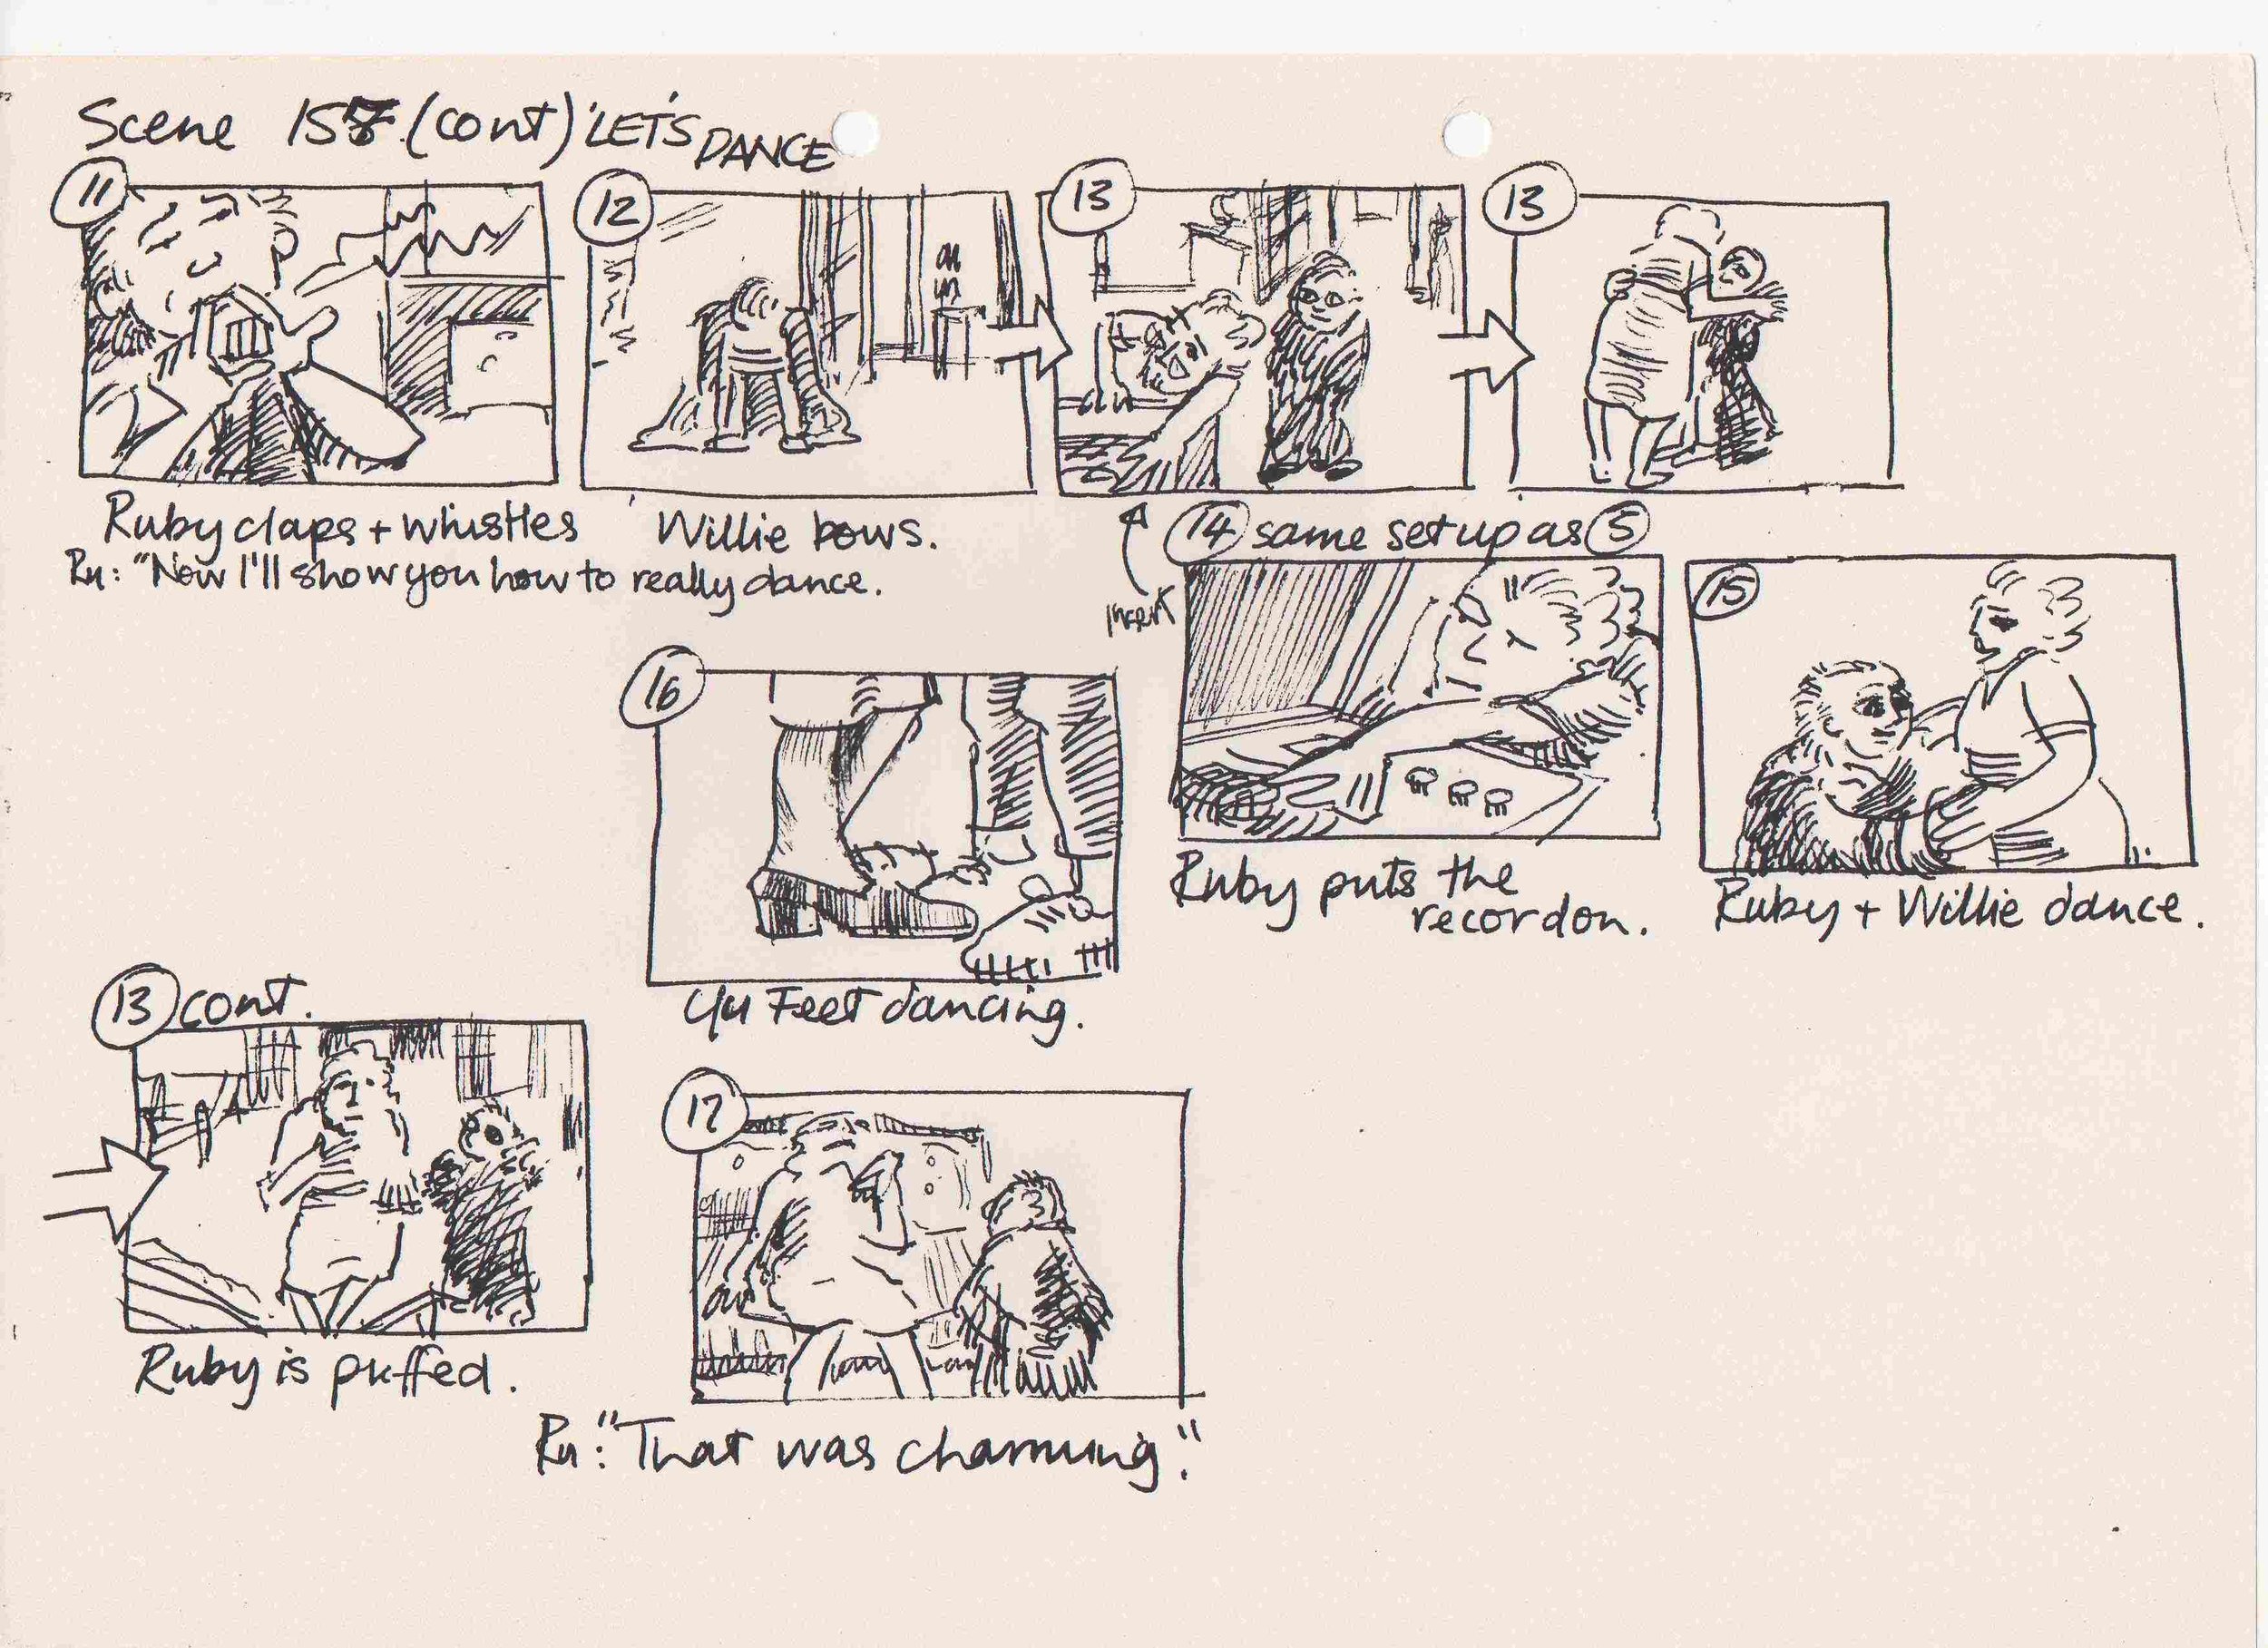 Scene 157 (cont) 'LET'S DANCE
11
12
13
13
Ruby claps + whistles
Willie bows.
Ru: "Now I'll show you how to really dance.
insert
14 same setup as 5
15
16
Ruby puts the
record on.
Ruby + Willie dance.
13 cont.
C/u Feet dancing.
17
Ruby is puffed.
Ru: "That was charming."